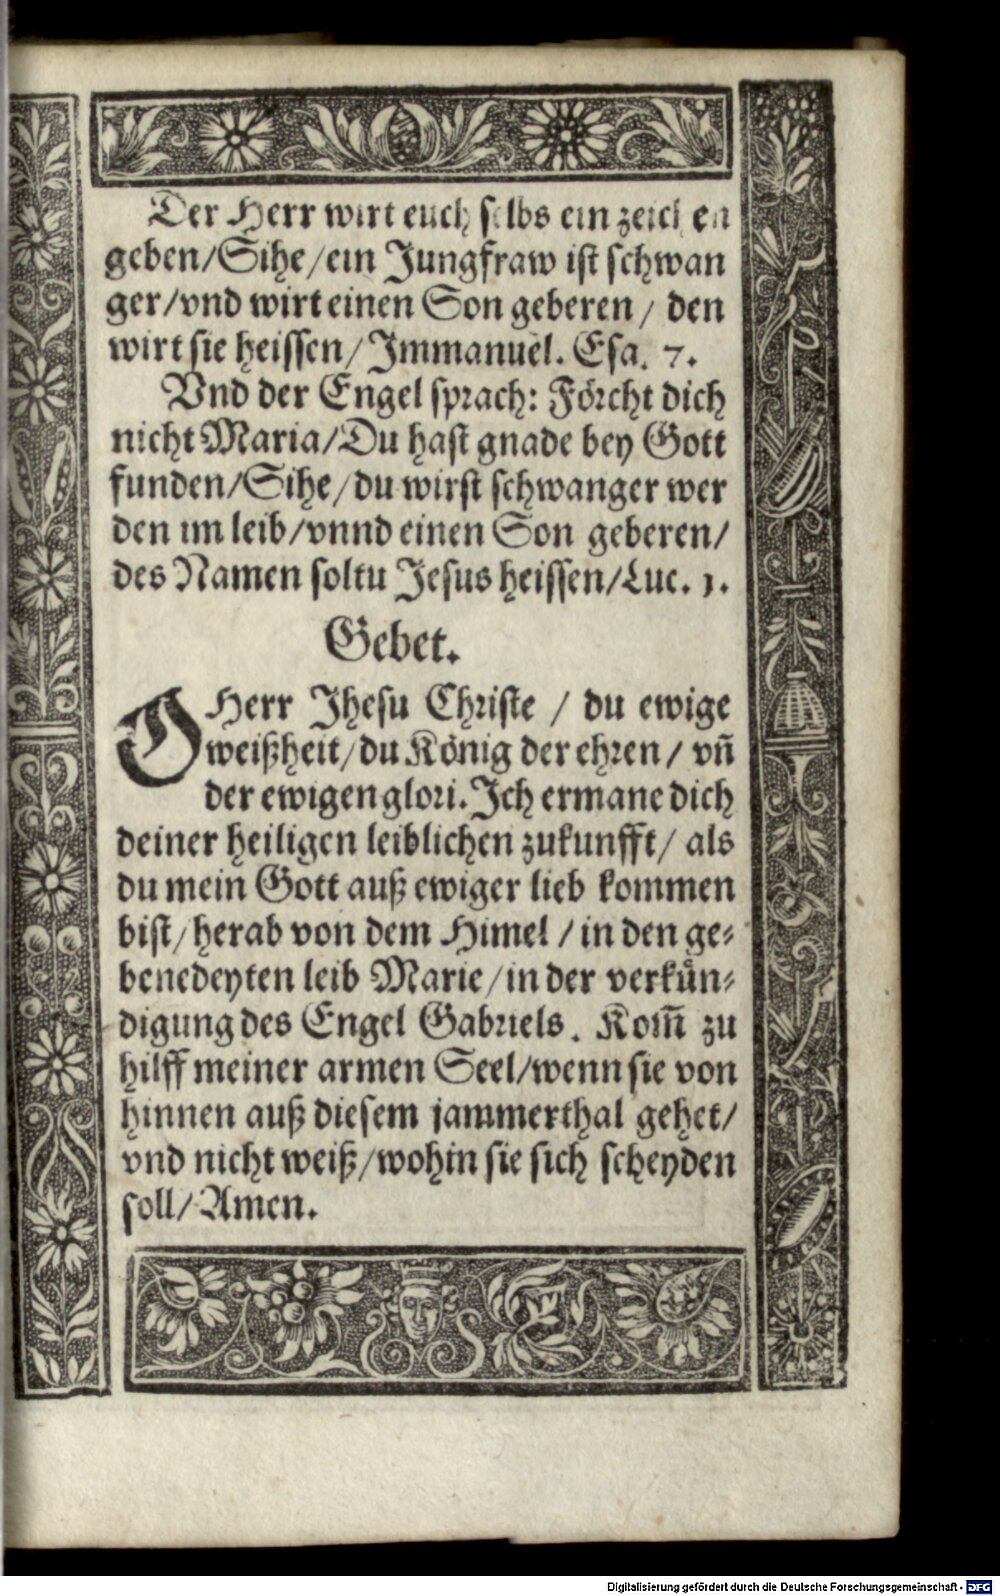 Der Herr wirt euch selbs ein zeichen
geben/Sihe/ein Jungfraw ist schwan
ger/vnd wirt einen Son geberen/ den
wirt sie heissen/Immanuel. Esa. 7.
Vnd der Engel sprach: Förcht dich
nicht Maria/Du hast gnade bey Gott
funden/Sihe/du wirst schwanger wer
den im leib/vnnd einen Son geberen/
des Namen soltu Jesus heissen/Luc. 1.
Gebet.
O Herr Jhesu Christe / du ewige
weißheit/du König der ehren/ vñ
der ewigen glori. Ich ermane dich
deiner heiligen leiblichen zukunfft/ als
du mein Gott auß ewiger lieb kommen
bist/herab von dem Himel / in den ge-
benedeyten leib Marie/in der verkün-
digung des Engel Gabriels. Kom̄ zu
hilff meiner armen Seel/wenn sie von
hinnen auß diesem jammerthal gehet/
vnd nicht weiß/wohin sie sich scheyden
soll/Amen.
Digitalisierung gefördert durch die Deutsche Forschungsgemeinschaft - DFG